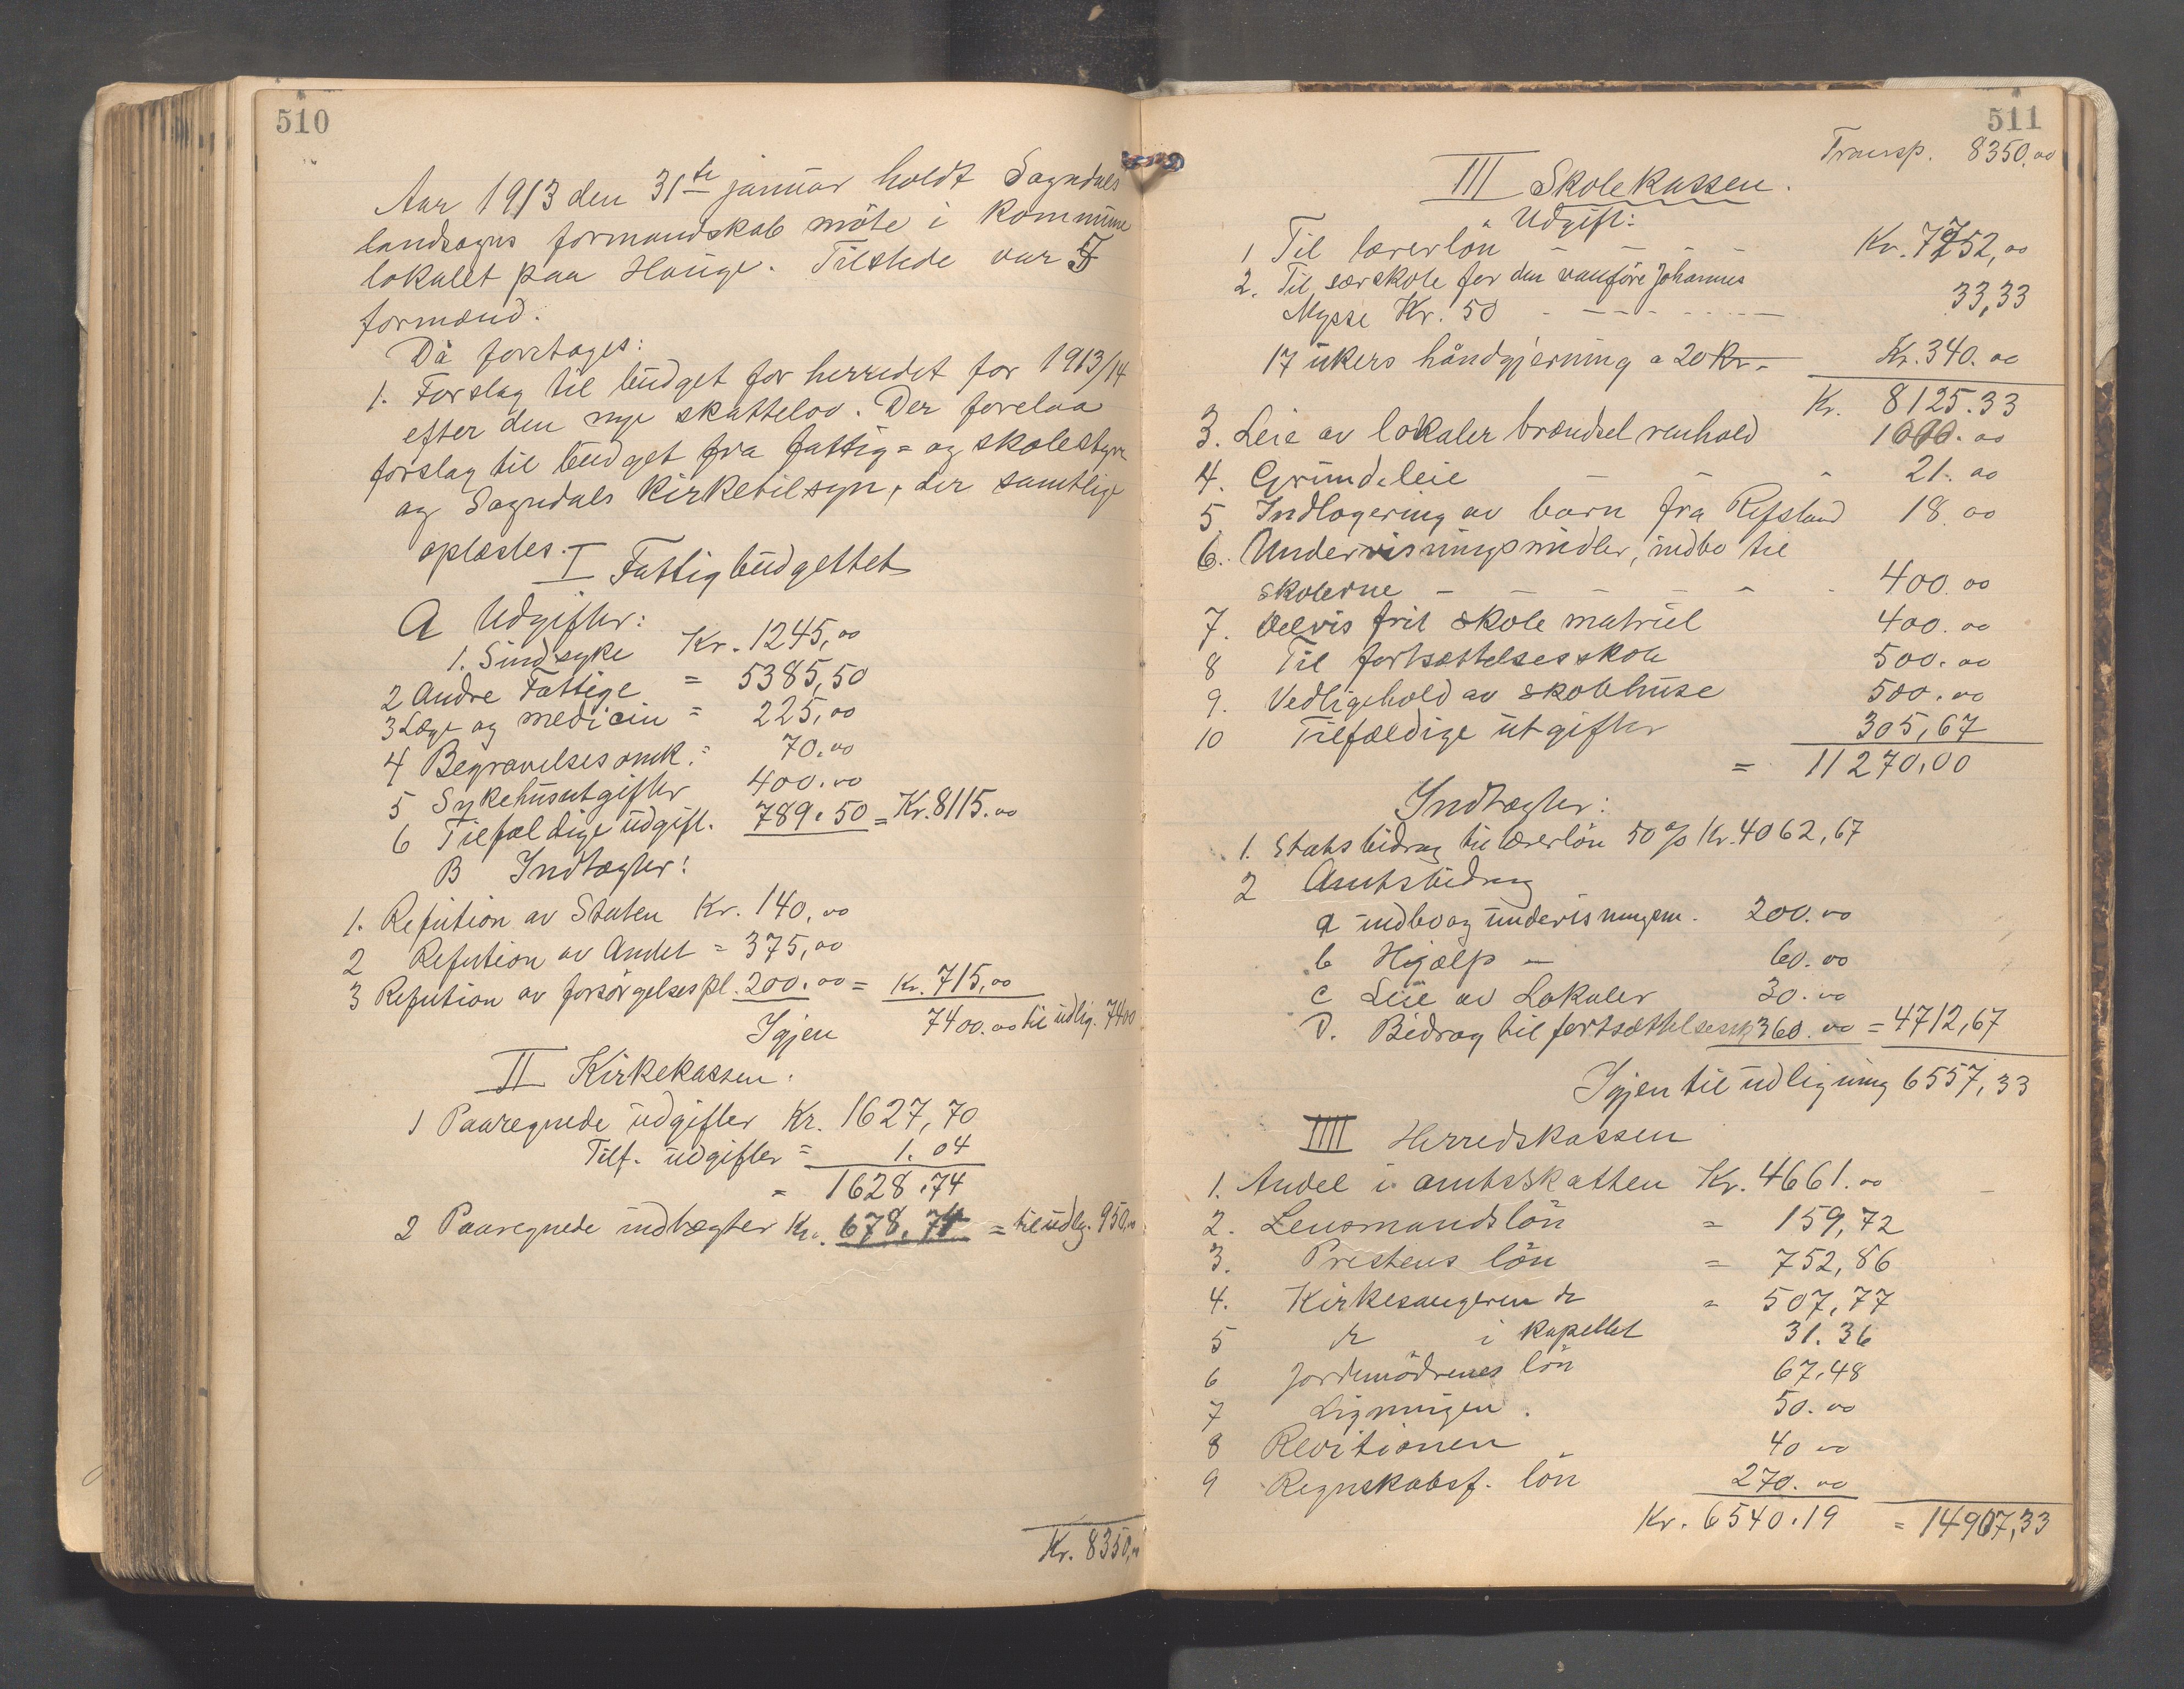 510
Aar 1913 den 31te januar holdt Sogndals
landsogns formandskab møte i kommune
lokalet paa Hauge. Tilstede var 5
formænd.
Da foretages:
1. Forslag til budget for herredet for 1913/14
efter den nye skattelov. Der forelaa
forslag til budget fra fattig= og skolestyre
og Sogndals Kirketilsyn, der samtlige
oplæstes.
I Fattigbudgettet
A Udgifter:
1. Sindsyke Kr. 1245,00
2 Andre Fattige = 5385,50
3 Læge og medicin = 225,00
4 Begravelsesomk. = 70.00
5 Sykehusutgifter 400.00
6 Tilfældige udgift. 789.50 = Kr. 8115.00
B Indtægter:
1. Refution av Staten Kr. 140,00
2 Refution av Amtet = 375,00
3 Refution av forsörgelsespl. 200.00 = Kr. 715,00
Igjen 7400.00 til udlig. 7400
II Kirkekassen.
1 Paaregnede udgifter Kr. 1627,70
Tilf. udgifter = 1.04
= 1628.74
2 Paaregnede indtægter Kr. 678.74 = til udlg. 950,00
Kr. 8350,00
511
Transp. 8350.00
III Skolekassen.
Udgift:
1 Til lærerlön Kr. 7752,00
2. Til særskole for den vanföre Johannes
Mysse Kr. 50 33,33
17 ukers håndgjerning a 20 Kr. Kr. 340.00
Kr. 8125.33
3. Leie av lokaler brændsel renhold 1000.00
4. Grundeleie 21.00
5. Indlogering av barn fra Refsland 18.00
6. Undervisningsmidler, indbo til
skolerne 400.00
7. Delvis frit skole matriel 400.00
8 Til fortsættelsesskole 500.00
9. Vedligehold av skolehuse 500.00
10 Tilfældige utgifter 305,67
= 11270,00
Indtægter:
1. Statsbidrag til lærerlön 50 % Kr. 4062,67
2 Amtsbidrag
a indbo og undervisningsm. 200.00
b Hjælp 60.00
c Leie av Lokaler 30.00
D. Bidrag til fortsættelsessk 360.00 = 4712,67
Igjen til udligning 6557,33
IIII Herredskassen
1. Andel i amtsskatten Kr. 4661.00
2. Lensmandslön = 159,72
3. Prestens lön = 752,86
4. Kirkesangeren do = 507,77
5 do i kapellet 31.36
6 Jordmödrenes lön 67.48
7 Ligningen. 50.00
8 Revitionen 40 00
9 Regnskabsf. lön 270.00
Kr. 6540.19 = 14907,33